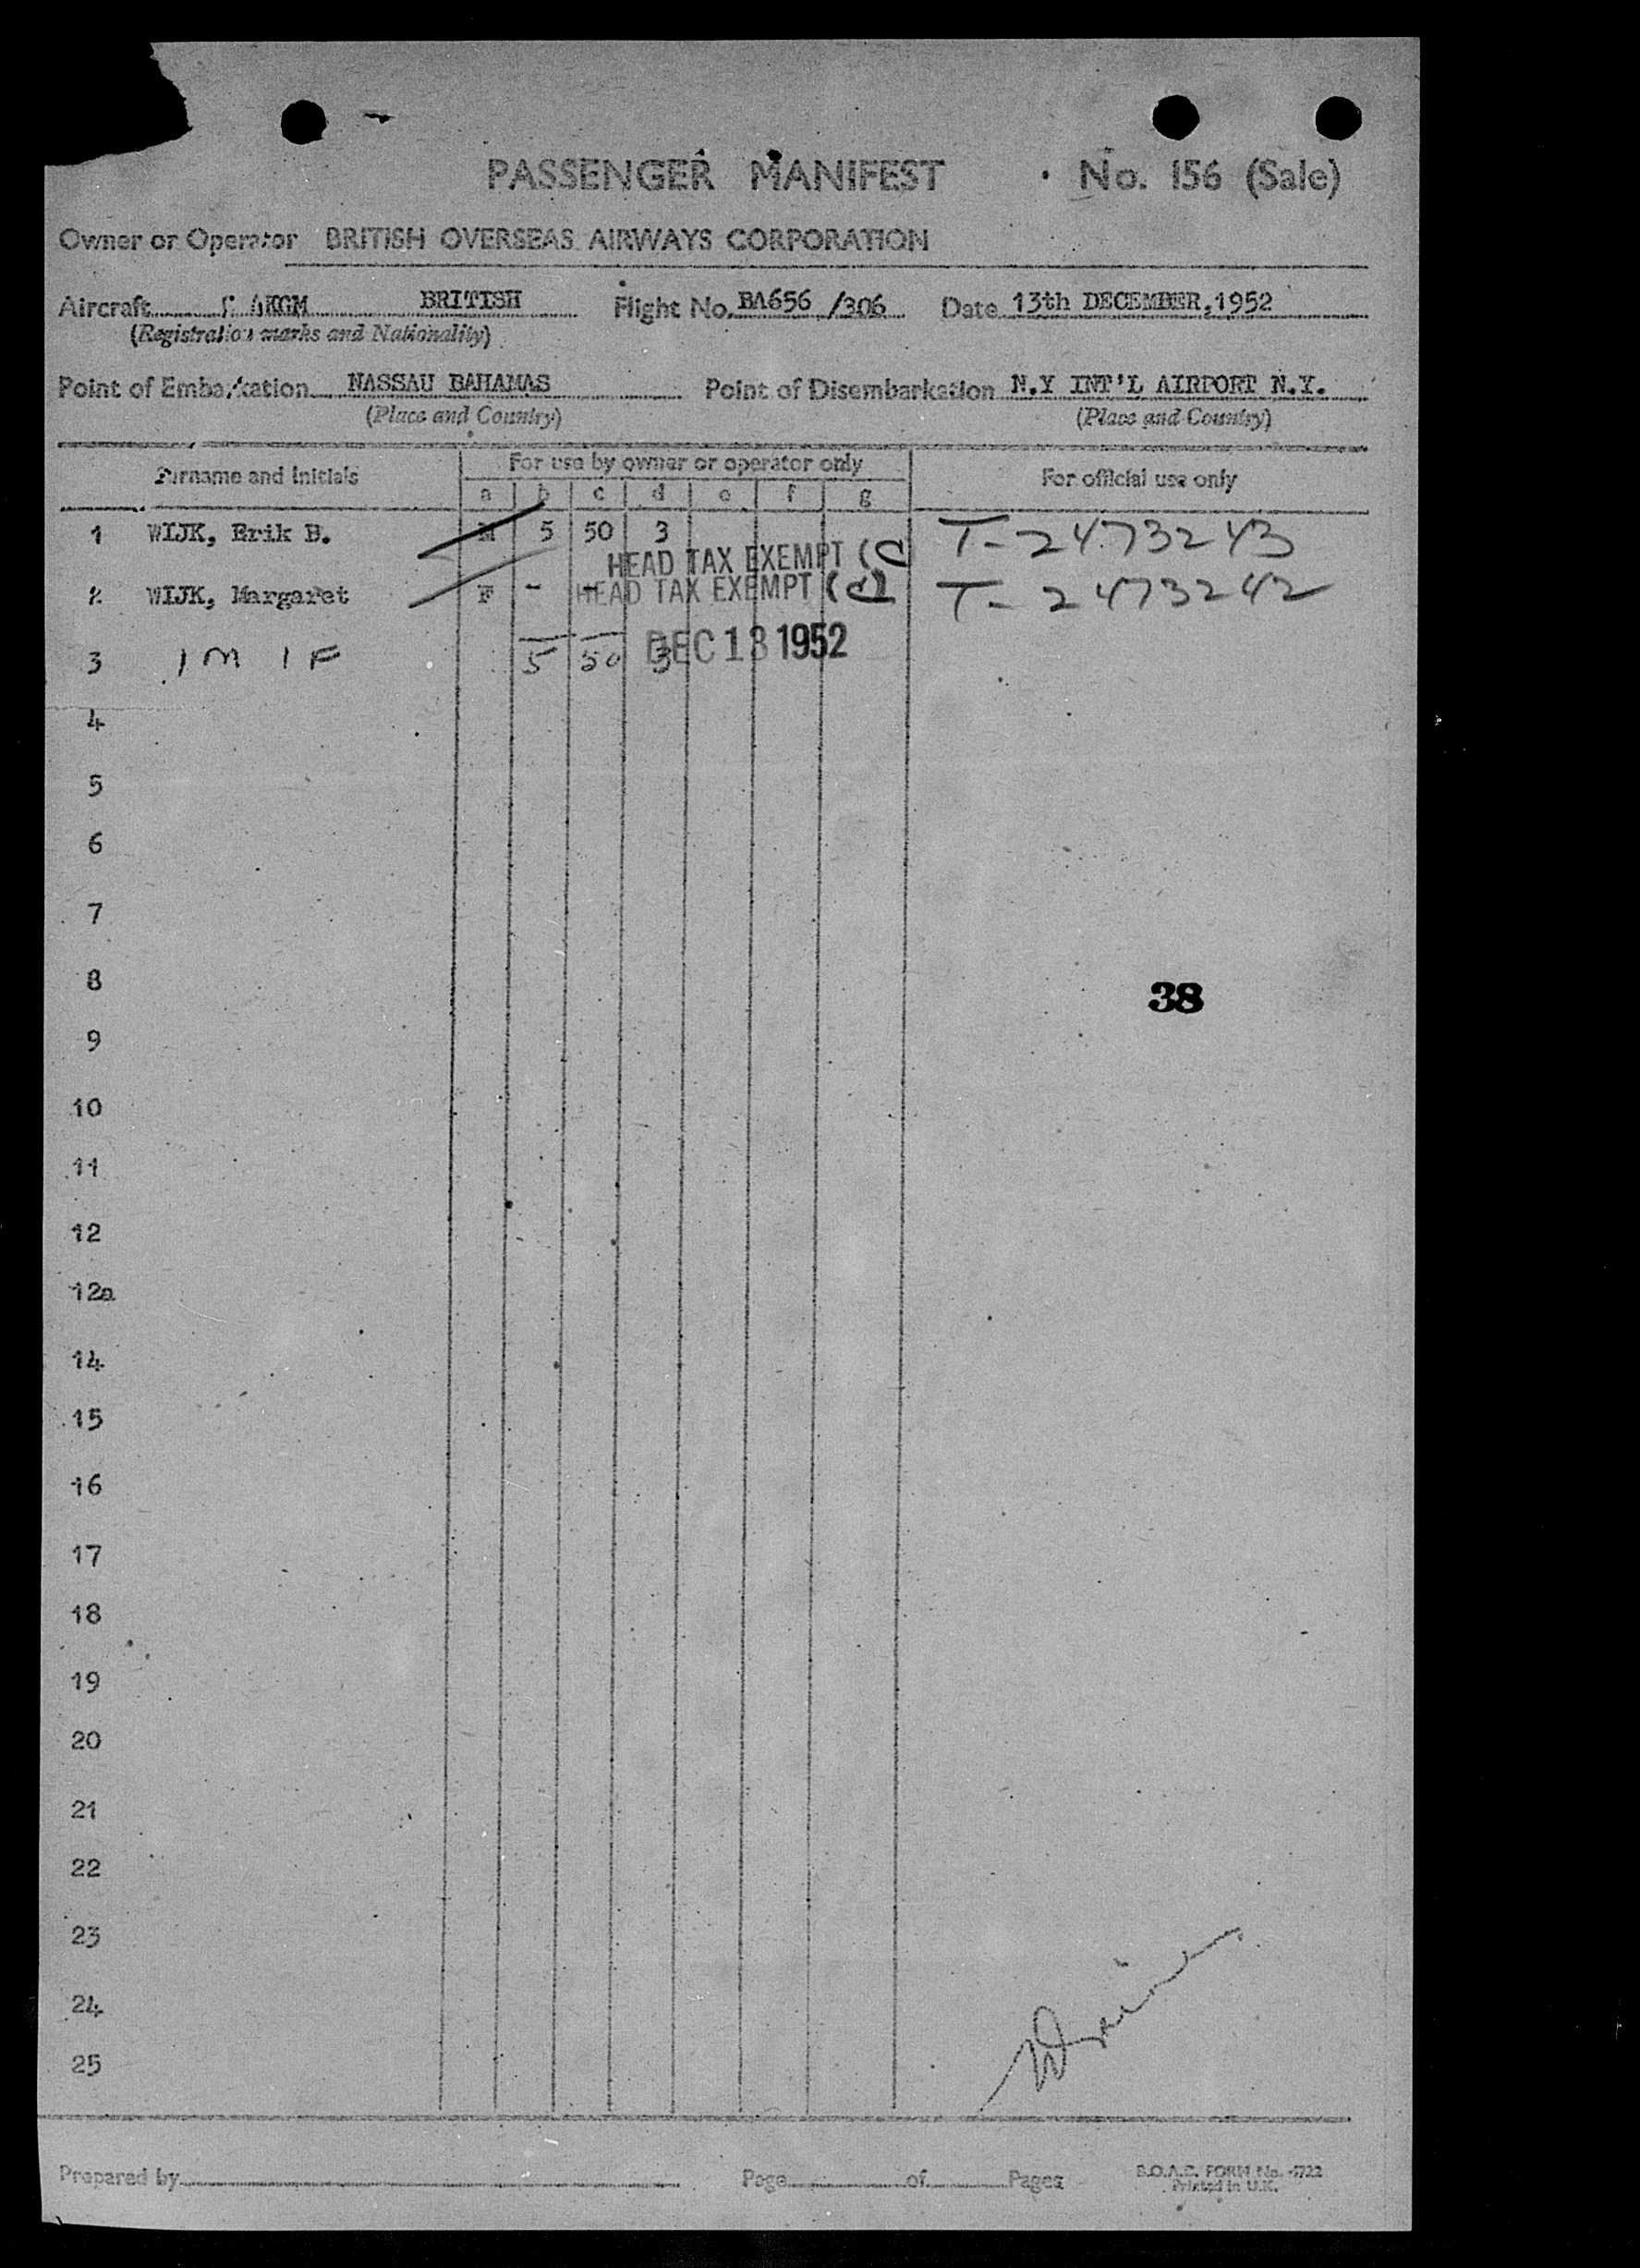 PASSENGER MANIFEST No. 156 (Sale)
Owner or Operator BRITISH OVERSEAS AIRWAYS CORPORATION
Aircraft AKGM BRITISH Flight No. BA656 /306 Date 13th DECEMBER, 1952
(Registration marks and Nationality)
Point of Embarkation NASSAU BAHAMAS Point of Disembarkation N.Y INT'L AIRPORT N.Y.
(Place and Country) (Place and Country)
Surname and initials For use by owner or operator only For official use only
a b c d e f g
1 WIJK, Erik B. M 5 50 3 T-2473243
HEAD TAX EXEMPT (C
2 WIJK, Margaret F - HEAD TAX EXEMPT (d) T-2473242
3 1 M 1 F 5 50 3 DEC 13 1952
4
5
6
7
8
38
9
10
11
12
12a
14
15
16
17
18
19
20
21
22
23
24
25
Prepared by Page of Pages B.O.A.C. FORM No.
Printed in U.K.